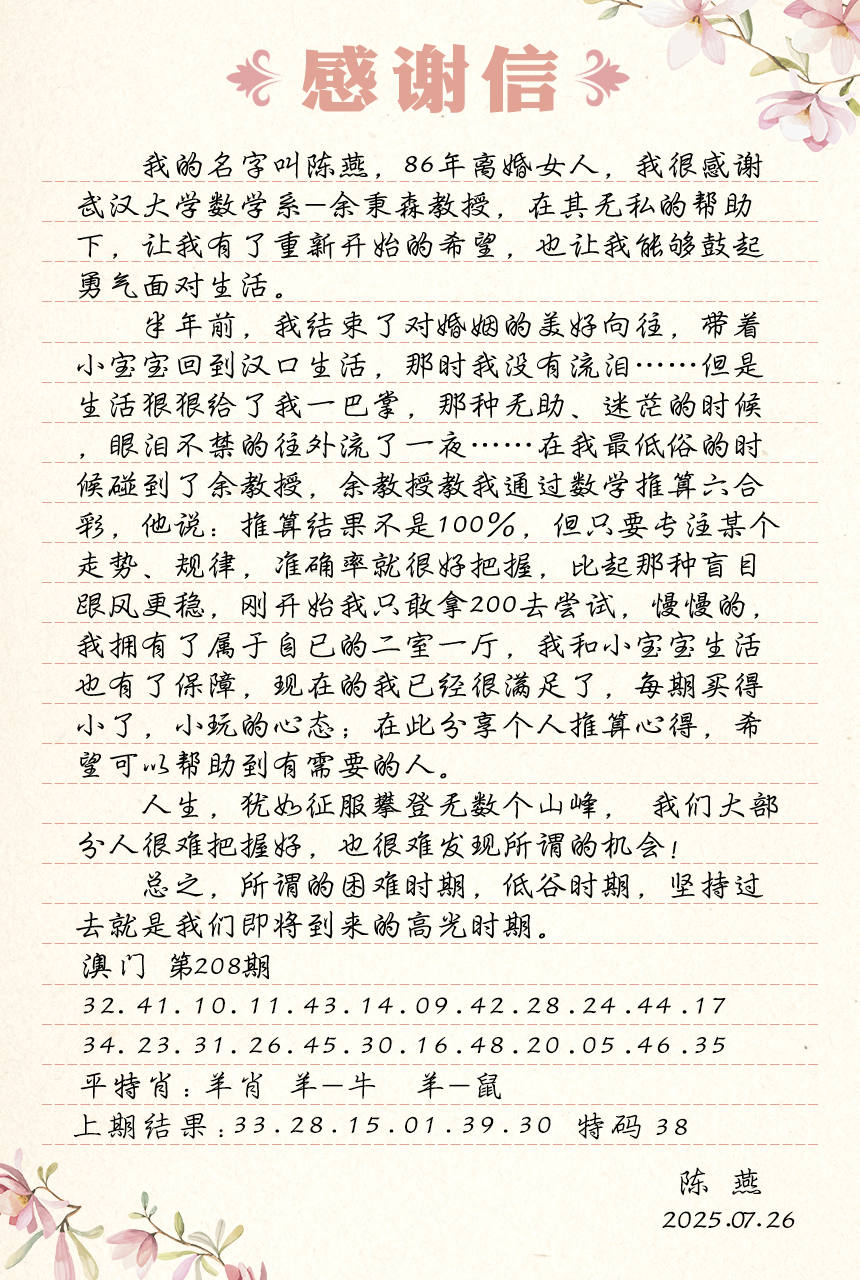 感谢信
我的名字叫陈燕，86年离婚女人，我很感谢
武汉大学数学系—余秉森教授，在其无私的帮助
下，让我有了重新开始的希望，也让我能够鼓起
勇气面对生活。
半年前，我结束了对婚姻的美好向往，带着
小宝宝回到汉口生活，那时我没有流泪……但是
生活狠狠给了我一巴掌，那种无助、迷茫的时候
，眼泪不禁的往外流了一夜……在我最低俗的时
候碰到了余教授，余教授教我通过数学推算六合
彩，他说：推算结果不是100%，但只要专注某个
走势、规律，准确率就很好把握，比起那种盲目
跟风更稳，刚开始我只敢拿200去尝试，慢慢的，
我拥有了属于自已的二室一厅，我和小宝宝生活
也有了保障，现在的我已经很满足了，每期买得
小了，小玩的心态；在此分享个人推算心得，希
望可以帮助到有需要的人。
人生，犹如征服攀登无数个山峰， 我们大部
分人很难把握好，也很难发现所谓的机会！
总之，所谓的困难时期，低谷时期，坚持过
去就是我们即将到来的高光时期。
澳门 第208期
32.41.10.11.43.14.09.42.28.24.44.17
34.23.31.26.45.30.16.48.20.05.46.35
平特肖：羊肖 羊—牛 羊—鼠
上期结果：33.28.15.01.39.30 特码 38
陈 燕
2025.07.26